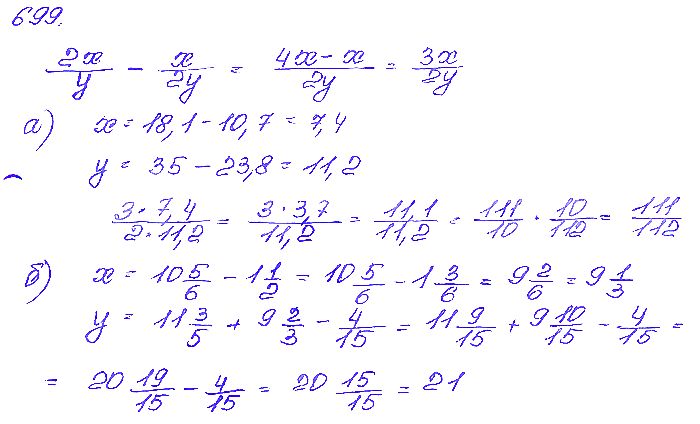 699.
2x/y - x/2y = 4x-x/2y = 3x/2y
а) x = 18,1 - 10,7 = 7,4
y = 35 - 23,8 = 11,2
3·7,4/2·11,2 = 3·3,7/11,2 = 11,1/11,2 = 111/10 · 10/112 = 111/112
б) x = 10 5/6 - 1 1/2 = 10 5/6 - 1 3/6 = 9 2/6 = 9 1/3
y = 11 3/5 + 9 2/3 - 4/15 = 11 9/15 + 9 10/15 - 4/15 =
= 20 19/15 - 4/15 = 20 15/15 = 21